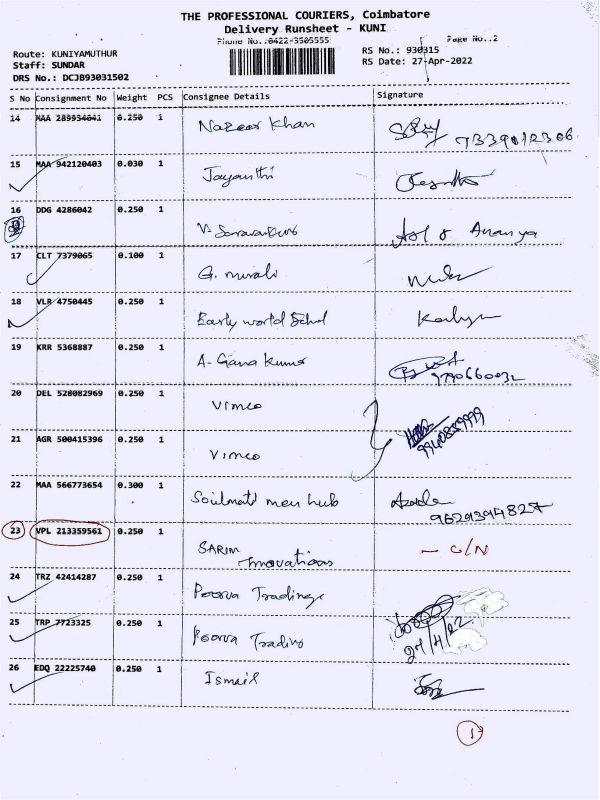 THE PROFESSIONAL COURIERS, Coimbatore
Delivery Runsheet - KUNI
Phone No.:0422-3505555
Page No.:2
Route: KUNIYAMUTHUR
RS No.: 930315
Staff: SUNDAR
RS Date: 27-Apr-2022
DRS No.: DCJB93031502
S No Consignment No Weight PCS Consignee Details Signature
14 MAA 289934041 0.250 1 Nazeer Khan 7339012306
15 MAA 942120403 0.030 1 Jayanthi
16 DDG 4286042 0.250 1 V. Ananya
17 CLT 7379065 0.100 1 G. Murali
18 VLR 4750445 0.250 1 Early world School Kalyn
19 KRR 5368887 0.250 1 A- Gana Kumar
9790660032
20 DEL 528082969 0.250 1 Vimco
9940859999
21 AGR 500415396 0.250 1 Vimco
22 MAA 566773654 0.300 1 Soulmate men hub Azade
9629394827
23 VPL 213359561 0.250 1 SARIM - C/N
Innovations
24 TRZ 42414287 0.250 1 Poorva Tradings
25 TRP 7723325 0.250 1 Poorva Trading
27/4/22
26 EDQ 22225740 0.250 1 Ismail
1